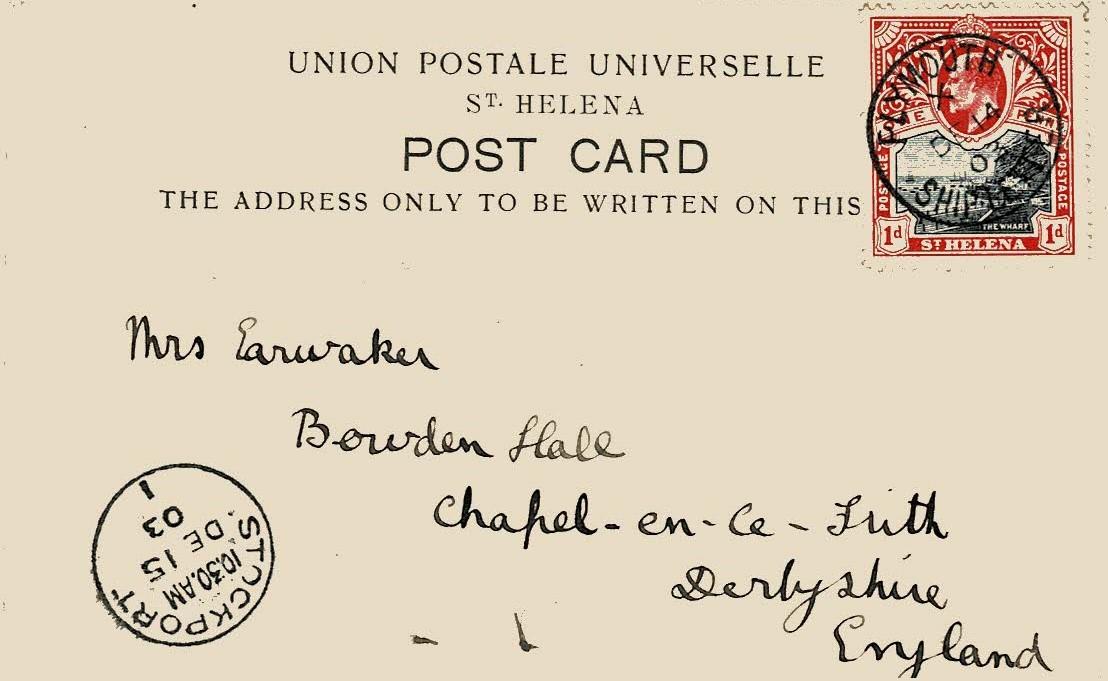 UNION POSTALE UNIVERSELLE
ST. HELENA
POST CARD
THE ADDRESS ONLY TO BE WRITTEN ON THIS
PLYMOUTH
X
DE 14
03
SHIP
POSTAGE
POSTAGE
THE WHARF
1d ST HELENA 1d
Mrs Earwaker
Bowden Hall
Chapel-en-le-Frith
Derbyshire
England
STOCKPORT
10.30.AM
DE 15
03
1